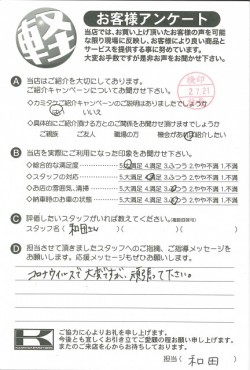 軽
お客様アンケート
当店では、お買い上げ頂いたお客様の声を可能
な限り現場に反映し、お客様により良い商品と
サービスを提供する事に努めています。
大変お手数ですが是非お声をお聞かせ下さい。
検印
2.2.21
A 当店はご紹介を大切にしております。
ご紹介キャンペーンについてお聞かせ下さい。
◇カミタケご紹介キャンペーンのご説明はありましたでしょうか
はい いいえ
◇具体的にご紹介頂ける方とのご関係をお聞かせ頂けますでしょうか
ご親族 ご友人 職場の方 機会があれば紹介したい
B 当店を実際にご利用になった印象をお聞かせ下さい。
◇総合的な満足度 5.大満足 4.満足 3.ふつう 2.やや不満 1.不満
◇スタッフの対応 5.大満足 4.満足 3.ふつう 2.やや不満 1.不満
◇お店の雰囲気、清掃 5.大満足 4.満足 3.ふつう 2.やや不満 1.不満
◇納車時のお車の状態 5.大満足 4.満足 3.ふつう 2.やや不満 1.不満
C 評価したいスタッフがいれば教えてください。(複数回答可)
スタッフ名( 和田さん )( )( )
D 担当させて頂きましたスタッフへのご指摘、ご指導メッセージを
お願いします。応援メッセージもぜひお願いします。
コロナウイルスで大変ですが、頑張って下さい。
K
ご協力に心よりお礼を申し上げます。
今後とも宜しくお引き立てご愛顧の程お願い申し上げます。
またのご来店を心からお待ちしております。
担当( 和田 )